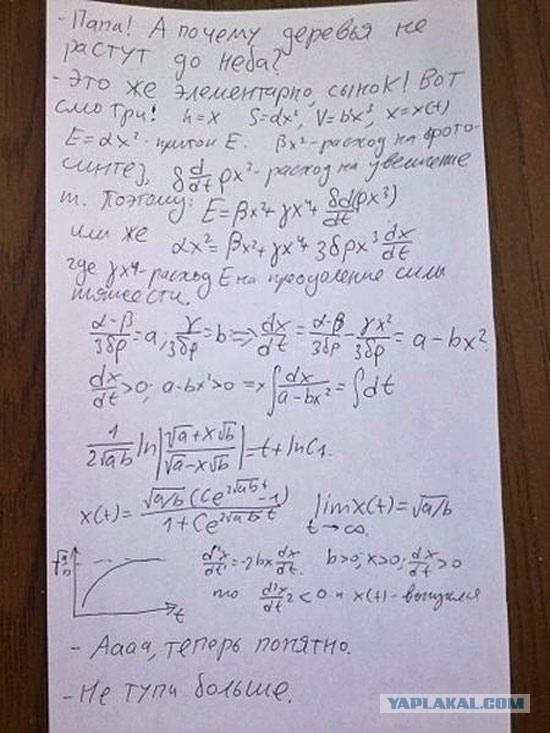 - Папа! А почему деревья не
растут до неба?
- Это же элементарно, сынок! Вот
смотри! h=x S=αx², V=bx³, x=x(t)
E=αx² - приток E. βx² - расход на фото-
синтез, δ d/dt ρx³ - расход на увеличение
m. Поэтому: E=βx²+γx⁴+δd(ρx³)/dt
или же αx²=βx²+γx⁴+3δρx² dx/dt
где γx⁴ - расход E на преодоление силы
тяжести.
(α-β)/3δρ=a, γ/3δρ=b => dx/dt=(α-β)/3δρ - γx²/3δρ = a-bx².
dx/dt>0; a-bx²>0 => ∫dx/(a-bx²)=∫dt
1/(2√ab) ln|(√a+x√b)/(√a-x√b)|=t+lnC1.
x(t)=√a/b(Ce^(2√ab t)-1)/(1+Ce^(2√ab t)) lim x(t)=√a/b
t→∞
√a/b d²x/dt²=-2bx dx/dt. b>0; x>0; dx/dt>0
t то d²x/dt²<0 и x(t) - выпуклая
- Аааа, теперь понятно.
- Не тупи больше.
YAPLAKAL.COM